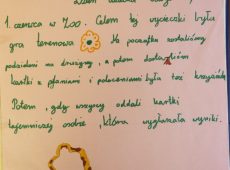 1. czerwca w ZOO. Celem tej wycieczki była
gra terenowa Na początku zostaliśmy
podzieleni na drużyny, a potem dostaliśmy
kartki z pytaniami i poleceniami była też krzyżówka
Potem, gdy wszyscy oddali kartki
tajemniczej osobie, która wygłaszała wyniki.